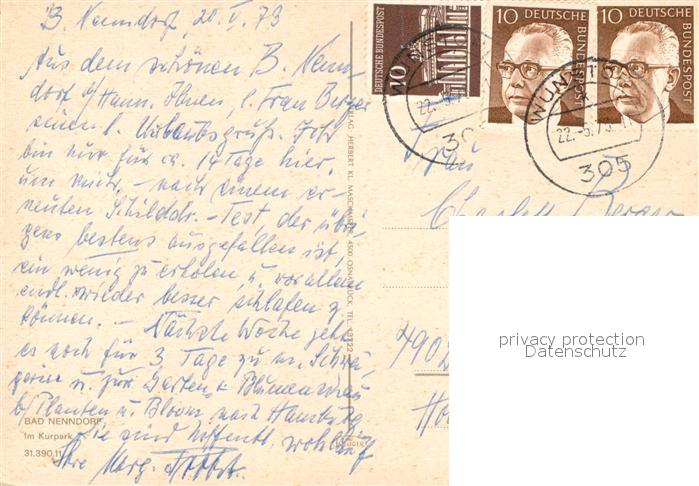 B. Nenndorf, 20. V. 73
Aus dem schönen B. Nenn-
dorf b/Hann. Ihnen, l. Frau Berger
einen l. Urlaubsgruß. Ich
bin nur für ca. 14 Tage hier,
um mich, – nach einem er-
neuten Schilddr. – Test, der übri-
gens bestens ausgefallen ist,
ein wenig zu erholen u. vor allem
endl. wieder besser schlafen z.
können. – Nächste Woche geht
es noch für 3 Tage zu m. Schwä-
gerin u. zur Garten u. Blumenschau
b/Planten u. Bloom nach Hamburg
Sie sind hoffentl. wohlauf
Ihre Marg.
BAD NENNDORF
Im Kurpark
31.390.11
VERLAG HERBERT KL. 4500 OSNABRÜCK TEL.
DEUTSCHE BUNDESPOST
10
10 DEUTSCHE BUNDESPOST
10 DEUTSCHE BUNDESPOST
WUNSTORF
22.-5.73
305
Frau
Charlott Berger
490
privacy protection
Datenschutz